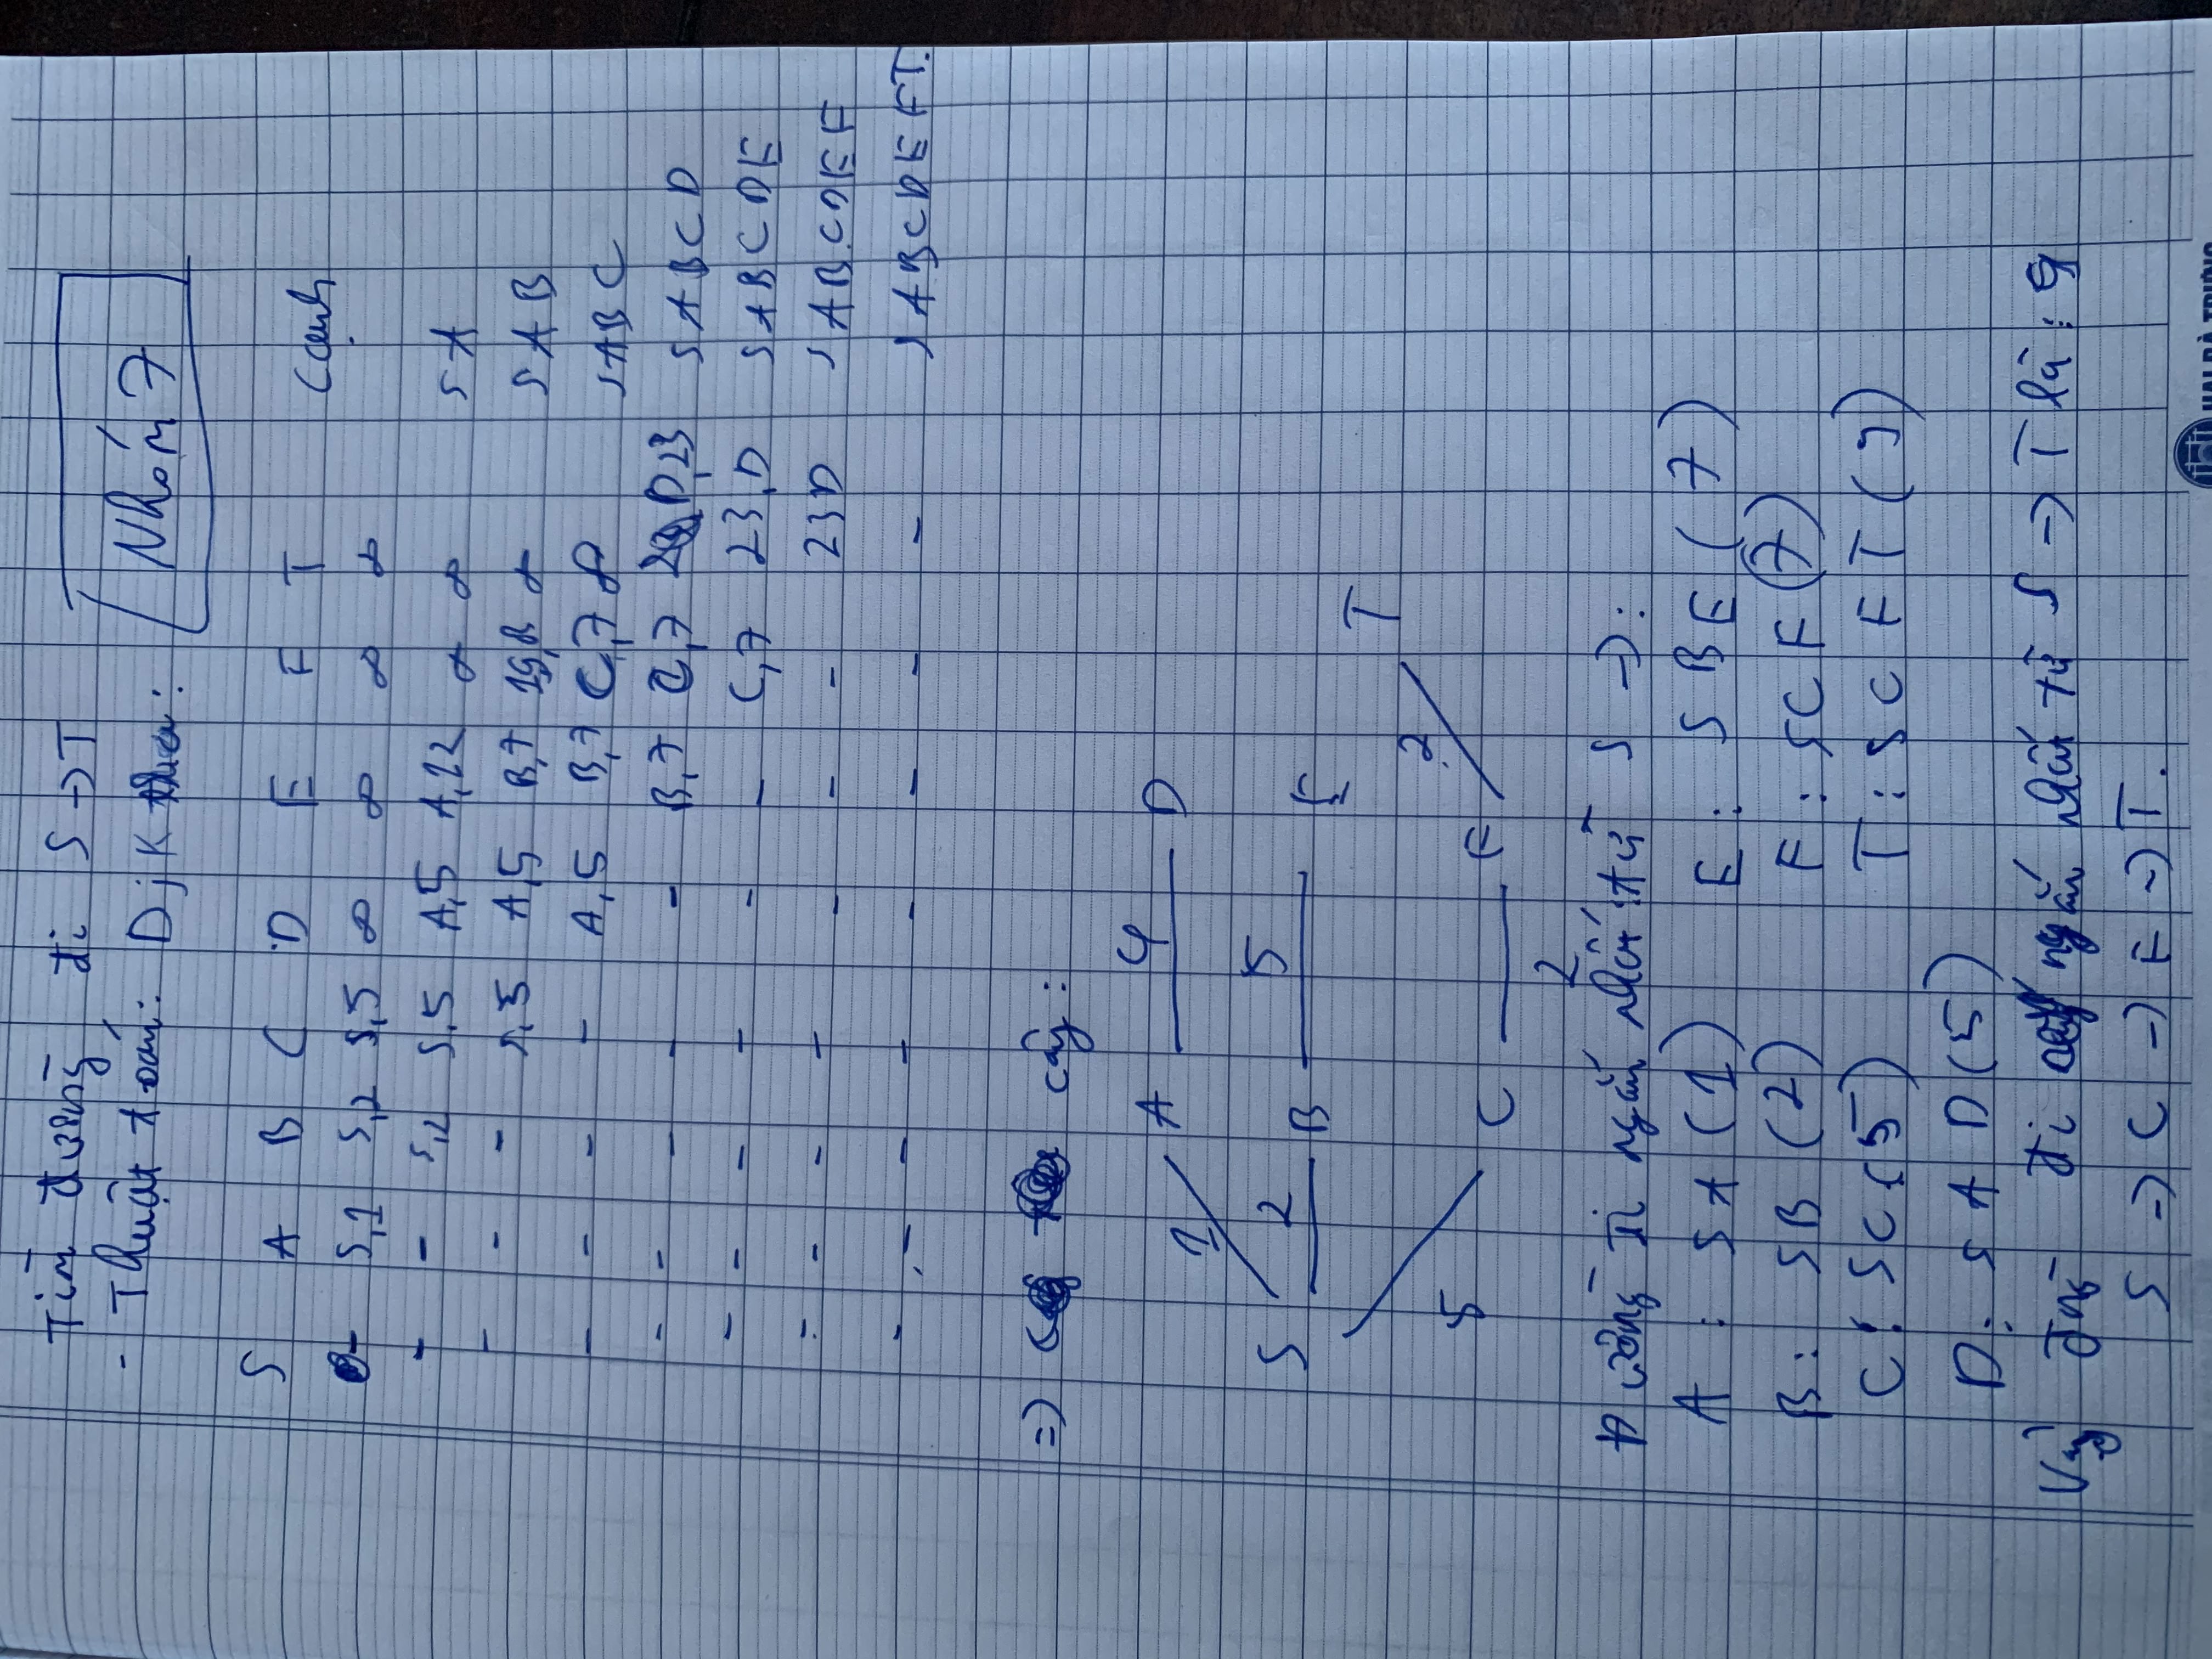 Tìm đường đi S → T
- Thuật toán: Djk tha: Nhóm 7
S A B C D E F T Cạnh
- S,1 S,2 S,5 ∞ ∞ ∞ ∞
- - S,2 S,5 A,5 A,12 ∞ ∞ SA
- - - S,5 A,5 B,7 19,B ∞ SAB
- - - - A,5 B,7 C,7 ∞ SABC
- - - - - B,7 C,7 D,23 SABCD
- - - - - - C,7 23,D SABCDE
- - - - - - - 23D SABCDEF
- - - - - - - - SABCDEFT.
=) cây:
A 4 D
1
S 2 B 5 E
T
5 2
C F
2
Đường đi ngắn nhất từ S →:
A : SA (1) E : SBE (7)
B : SB (2) F : SCF (7)
C : SC (5) T : SCFT (9)
D : SAD (5)
Vậy đi ngắn nhất từ S → T là : 9
S → C → F → T.
HAI BÀ TRƯNG